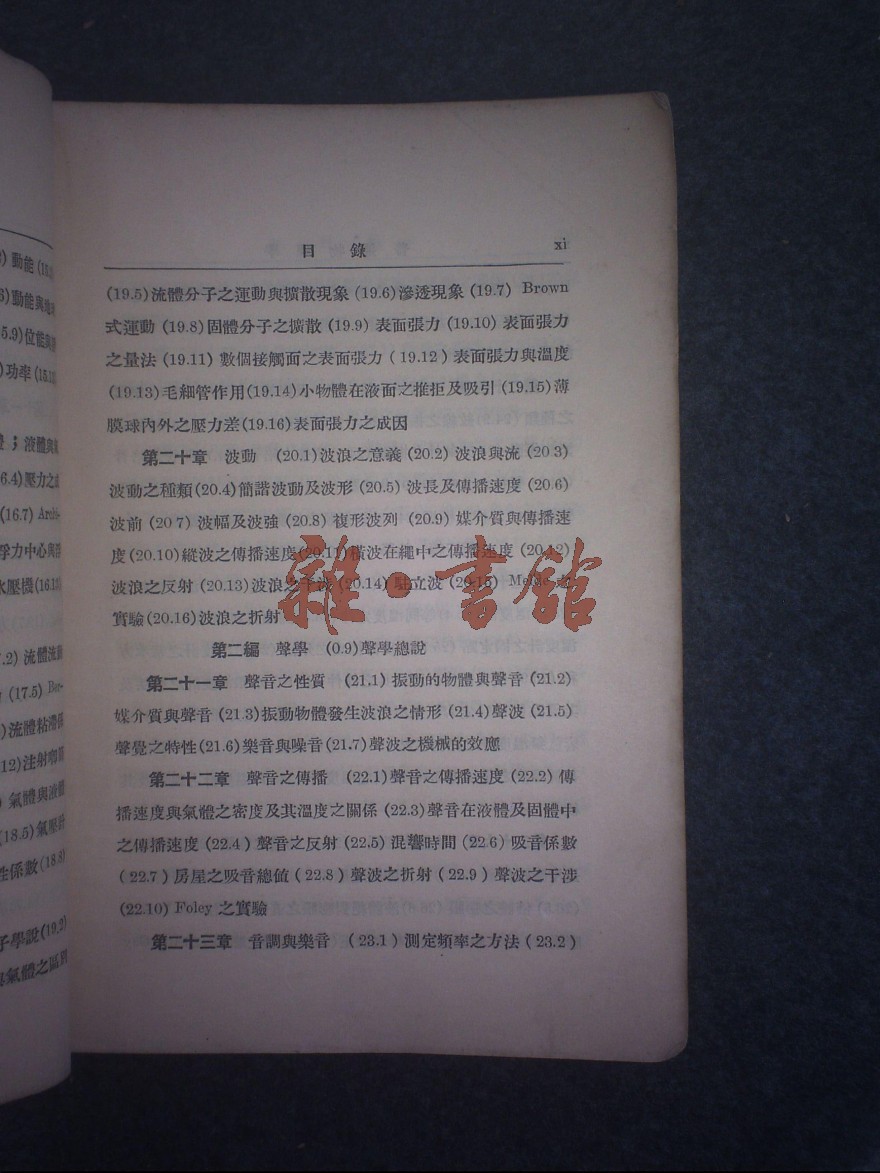 目錄 xi
(19.5)流體分子之運動與擴散現象(19.6)滲透現象(19.7) Brown
式運動(19.8)固體分子之擴散(19.9)表面張力(19.10)表面張力
之量法(19.11)數個接觸面之表面張力(19.12)表面張力與溫度
(19.13)毛細管作用(19.14)小物體在液面之推拒及吸引(19.15)薄
膜球內外之壓力差(19.16)表面張力之成因
第二十章 波動 (20.1)波浪之意義(20.2)波浪與流(20 3)
波動之種類(20.4)簡諧波動及波形(20.5)波長及傳播速度(20.6)
波前(20 7)波幅及波強(20.8)複形波列(20.9)媒介質與傳播速
度(20.10)縱波之傳播速度(20.11)橫波在繩中之傳播速度(20.12)
波浪之反射(20.13)波浪之干涉(20.14)駐立波(20.15)
實驗(20.16)波浪之折射
雜·書館
第二編 聲學 (0.9)聲學總說
第二十一章 聲音之性質 (21.1)振動的物體與聲音(21.2)
媒介質與聲音(21.3)振動物體發生波浪之情形(21.4)聲波(21.5)
聲覺之特性(21.6)樂音與噪音(21.7)聲波之機械的效應
第二十二章 聲音之傳播 (22.1)聲音之傳播速度(22.2)傳
播速度與氣體之密度及其溫度之關係(22.3)聲音在液體及固體中
之傳播速度(22.4)聲音之反射(22.5)混響時間(22.6)吸音係數
(22.7)房屋之吸音總值(22.8)聲波之折射(22.9)聲波之干涉
(22.10) Foley 之實驗
第二十三章 音調與樂音 (23.1)測定頻率之方法(23.2)